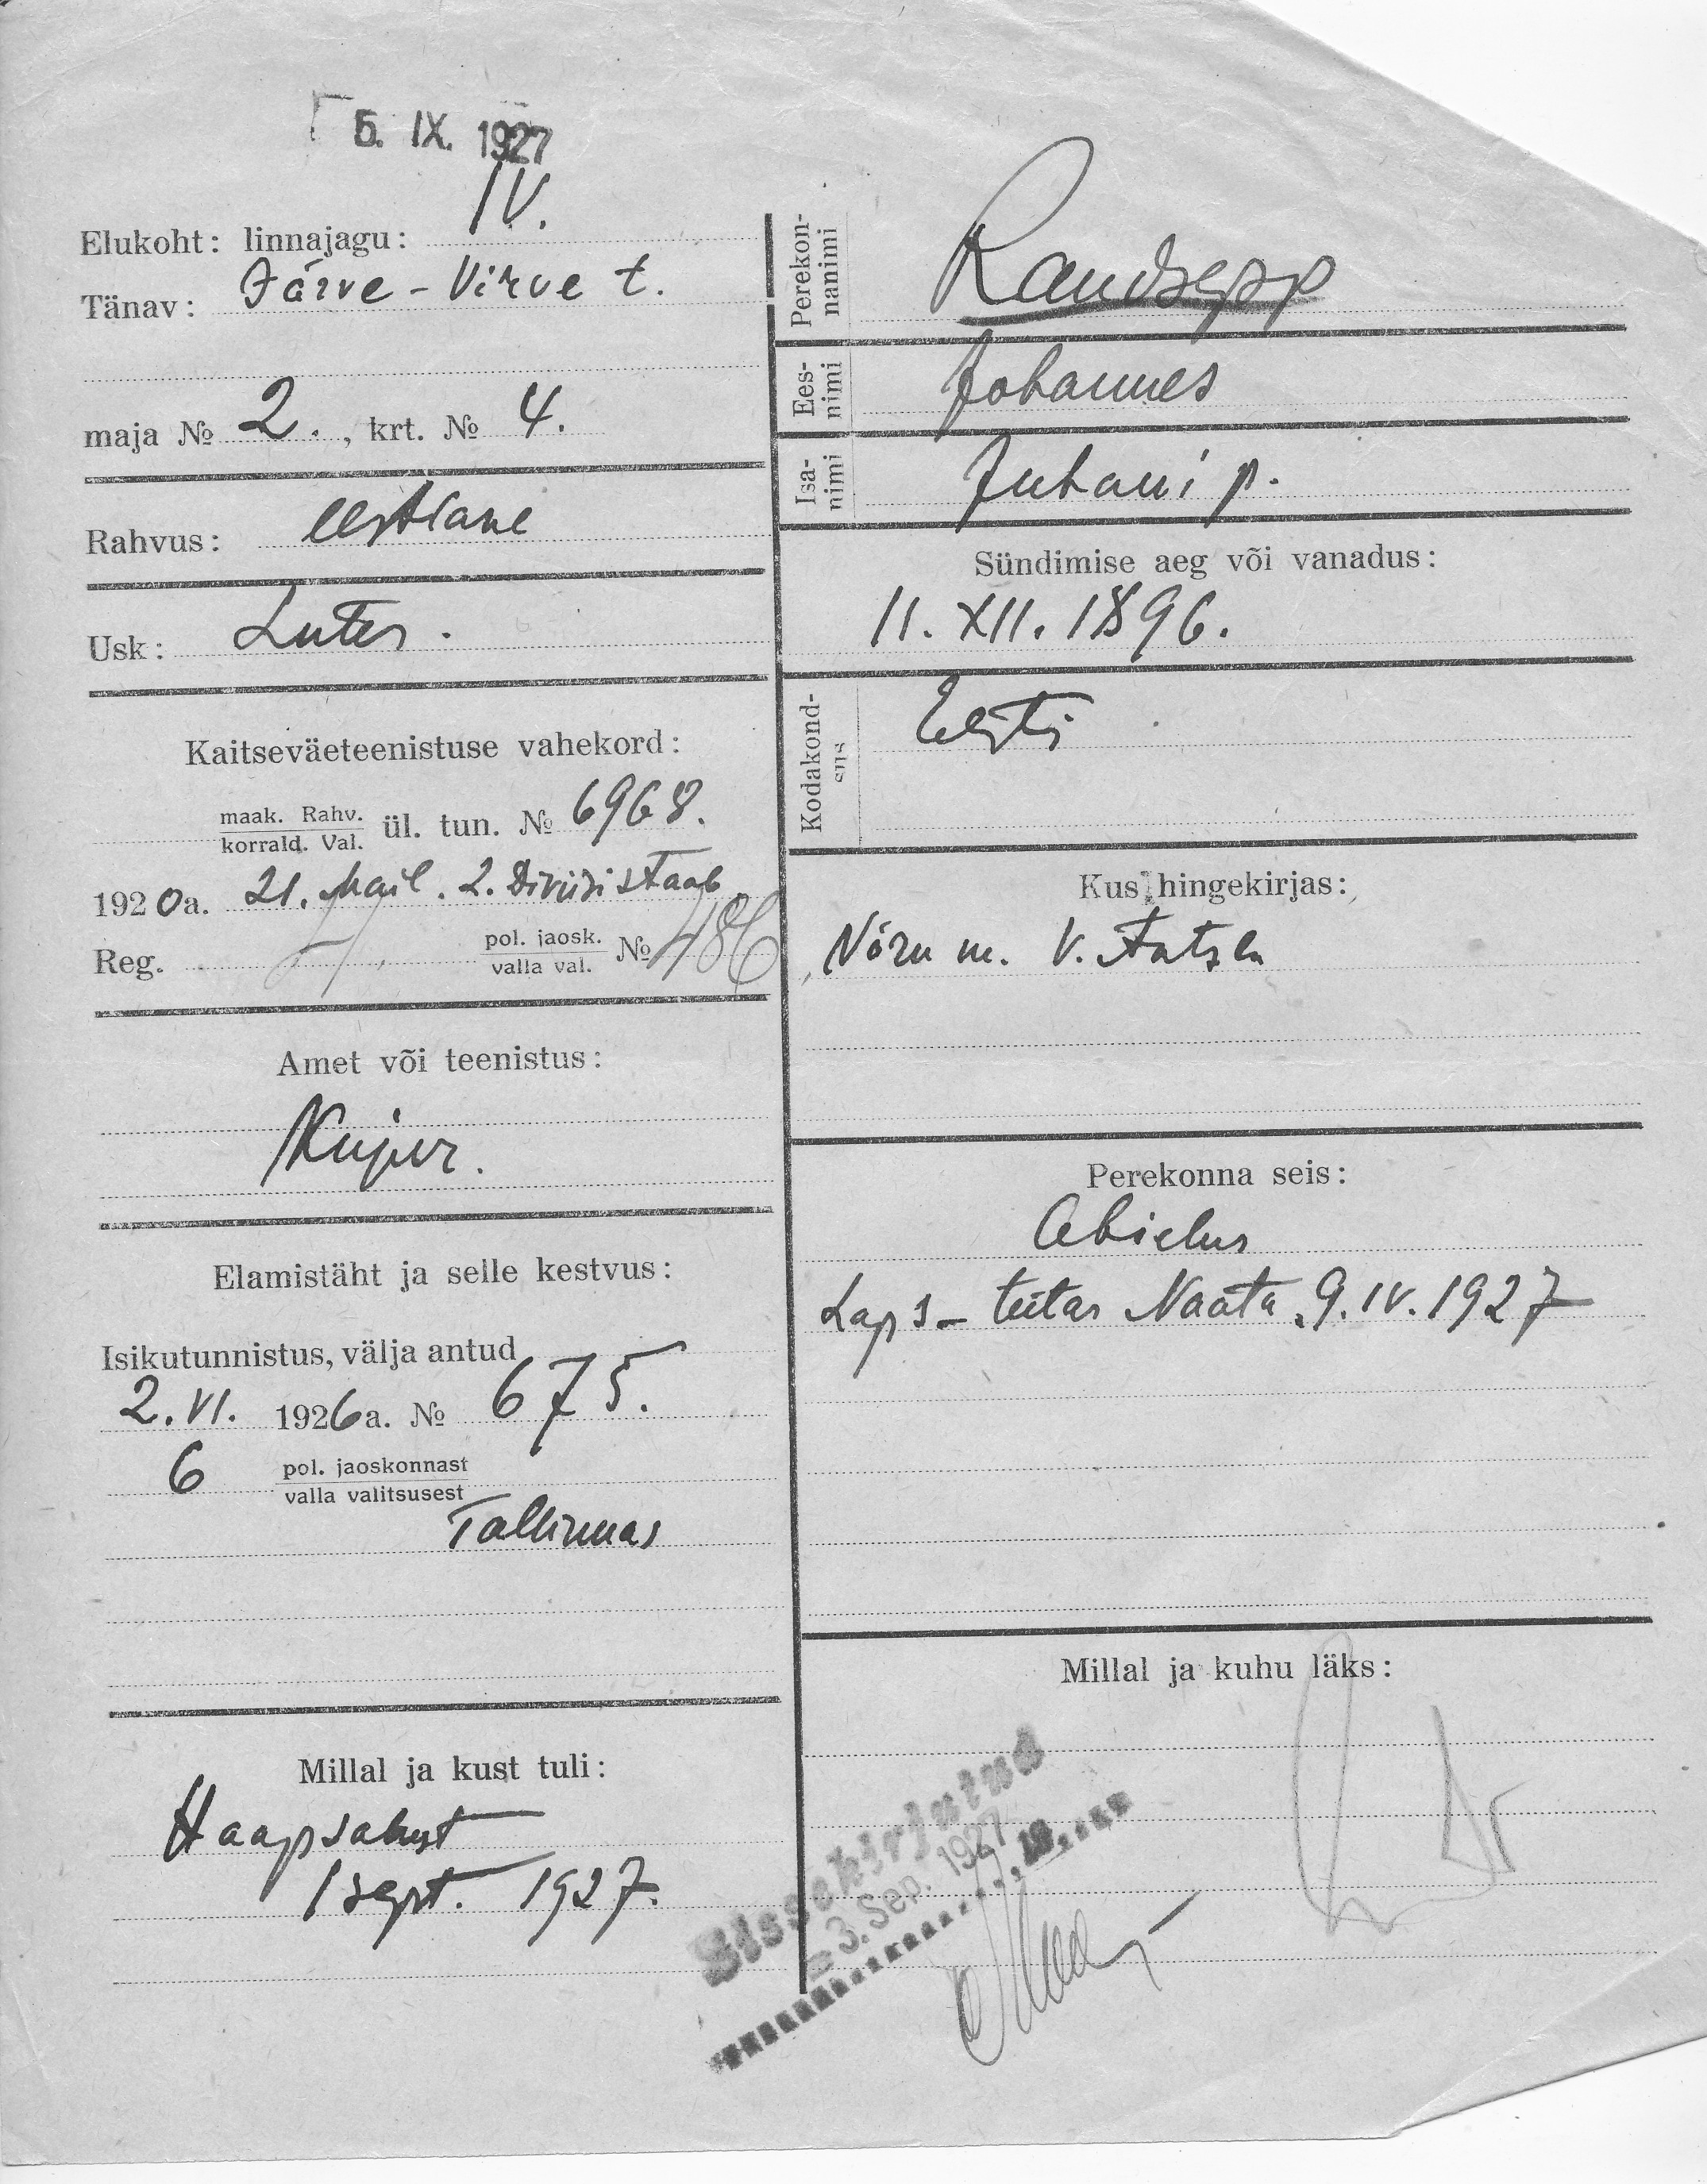 5. IX. 1927
Elukoht: linnajagu: IV.
Tänav: Järve-Virve t.
maja № 2., krt. № 4.
Rahvus: eestlane
Usk: Luter.
Kaitseväeteenistuse vahekord:
maak. Rahv.
korrald. Val. ül. tun. № 6968.
1920a. 21. Mail. 2. Diviisi staab
Reg. pol. jaosk.
valla val. № 486
Amet või teenistus:
Kujur.
Elamistäht ja selle kestvus:
Isikutunnistus, välja antud
2. VI. 1926a. № 675.
6 pol. jaoskonnast
valla valitsusest
Tallinnas
Millal ja kust tuli:
Haapsalust
1 sept. 1927.
Perekon-
nanimi Raudsepp
Ees-
nimi Johannes
Isa-
nimi Juhani p.
Sündimise aeg või vanadus:
11. XII. 1896.
Kodakond-
sus Eesti
Kus hingekirjas:
Võru m. V.
Perekonna seis:
Abielus
Laps- tütar 9. IV. 1927
Millal ja kuhu läks:
Sissekirjutud
3. Sep. 1927
19